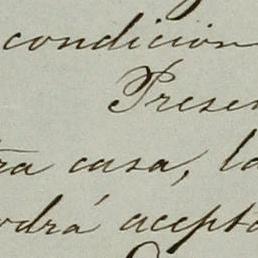 condición
Presen
tra casa, la
odrá acepta